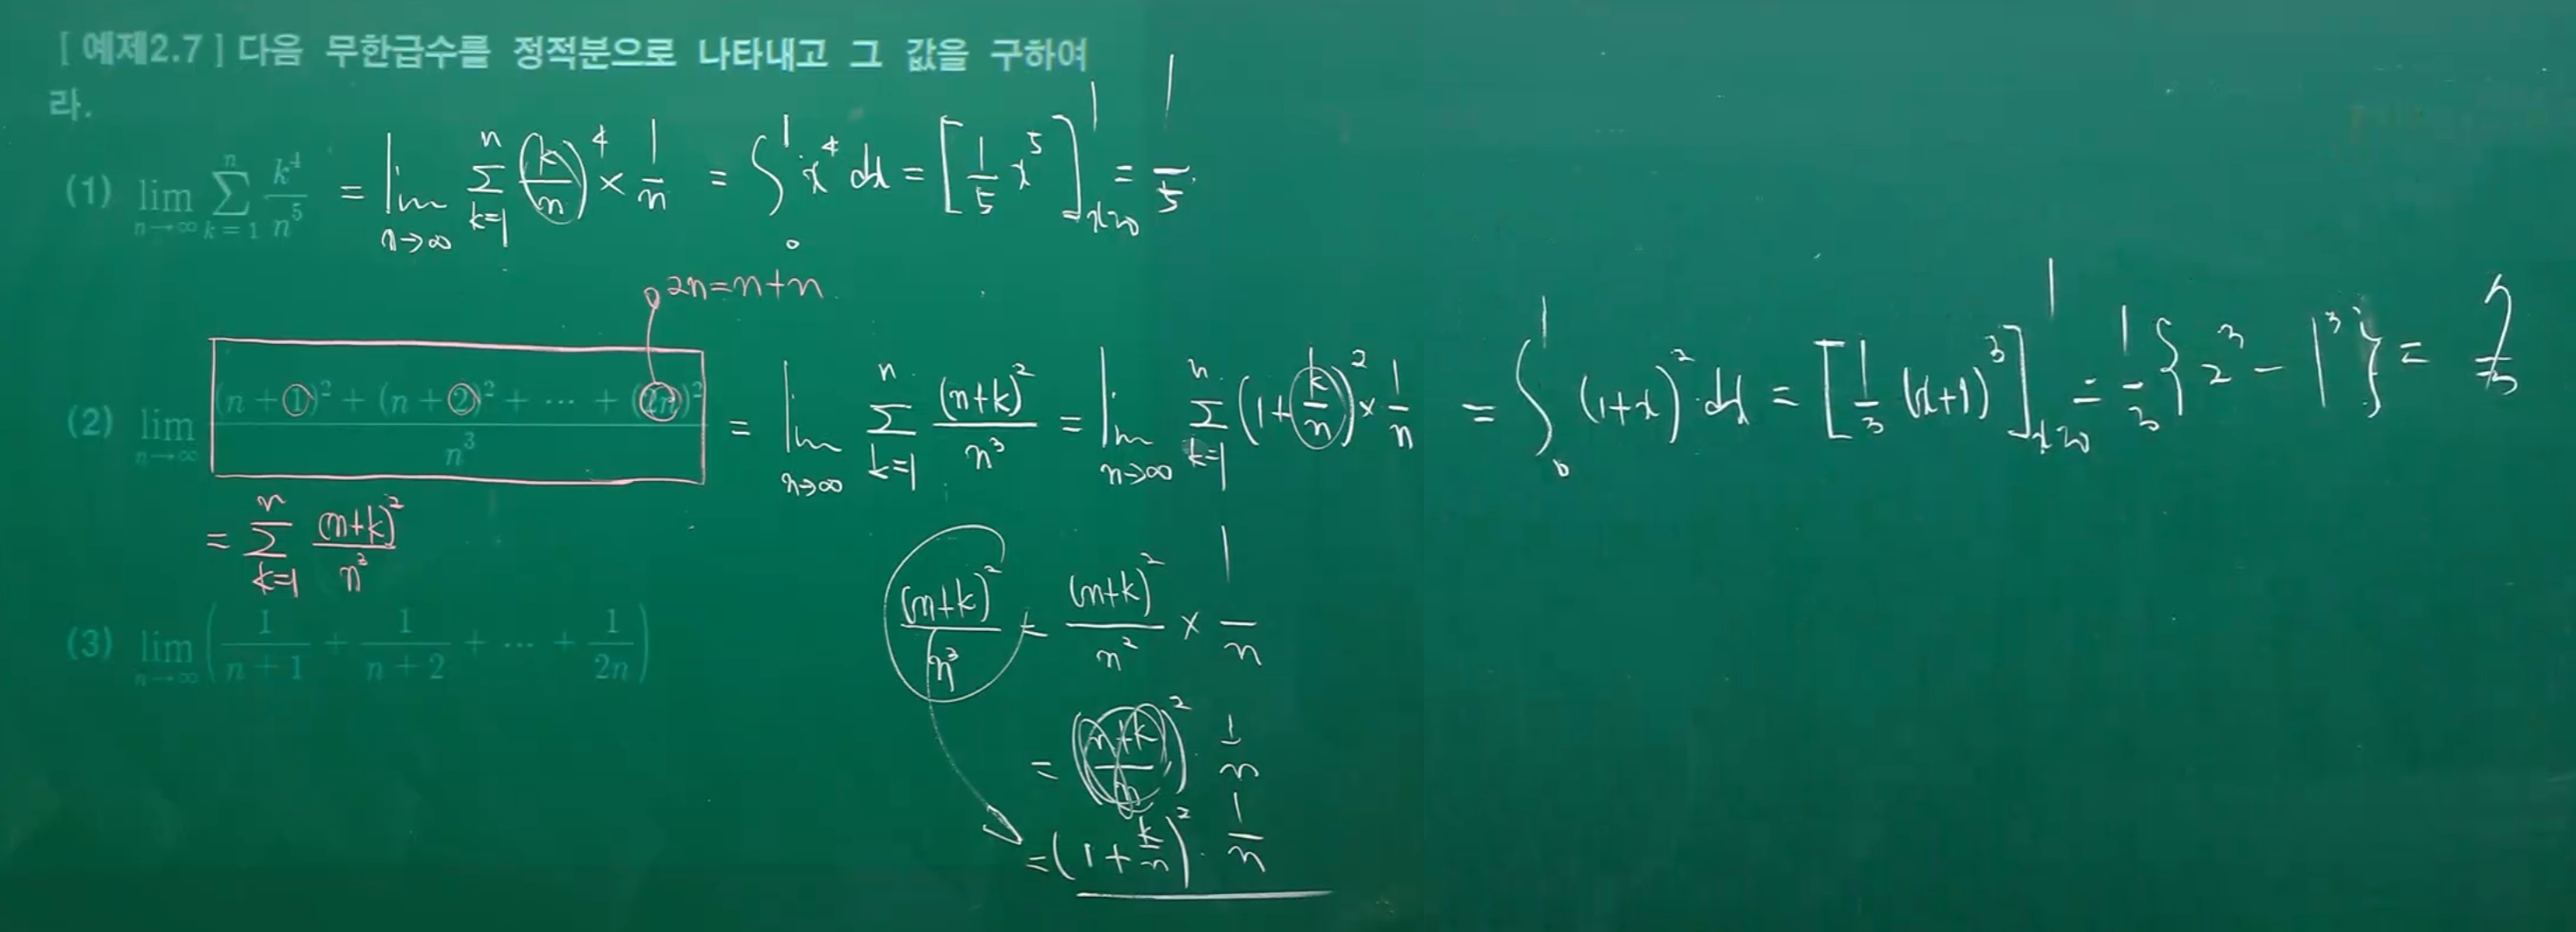 [ 예제2.7 ] 다음 무한급수를 정적분으로 나타내고 그 값을 구하여
라.
(1) lim_{n→∞} Σ_{k=1}^{n} k⁴/n⁵ = lim_{n→∞} Σ_{k=1}^{n} (k/n)⁴ × 1/n = ∫₀¹ x⁴ dx = [1/5 x⁵]_{x=0}^{1} = 1/5
2n=n+n
(2) lim_{n→∞} ((n+1)² + (n+2)² + ⋯ + (2n)²)/n³ = lim_{n→∞} Σ_{k=1}^{n} (n+k)²/n³ = lim_{n→∞} Σ_{k=1}^{n} (1+k/n)² × 1/n = ∫₀¹ (1+x)² dx = [1/3 (x+1)³]_{x=0}^{1} = 1/3 {2³ − 1³} = 7/3
= Σ_{k=1}^{n} (n+k)²/n³
(n+k)²/n³ = (n+k)²/n² × 1/n
= ((n+k)/n)² · 1/n
= (1+k/n)² · 1/n
(3) lim_{n→∞} (1/(n+1) + 1/(n+2) + ⋯ + 1/2n)